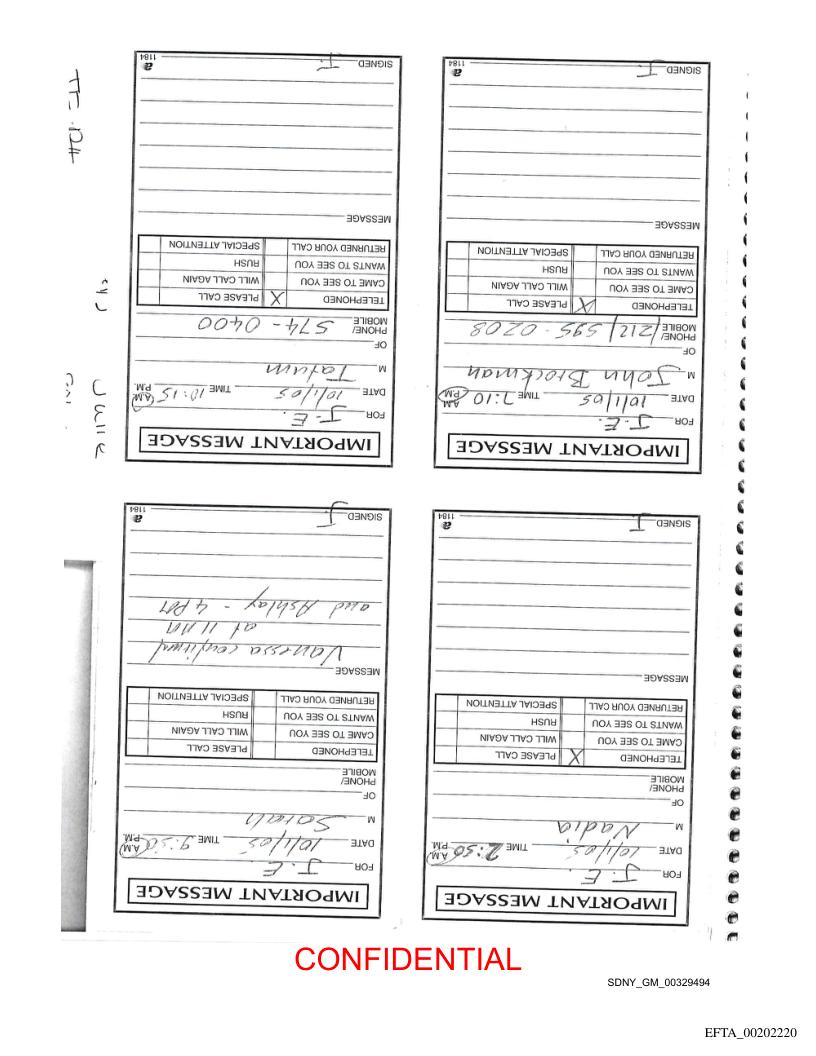 IMPORTANT MESSAGE
FOR J.E.
DATE 10/1/05 TIME A.M. P.M.
M Nadia
OF
PHONE/
MOBILE
TELEPHONED X PLEASE CALL
CAME TO SEE YOU WILL CALL AGAIN
WANTS TO SEE YOU RUSH
RETURNED YOUR CALL SPECIAL ATTENTION
MESSAGE
SIGNED J.
1184
IMPORTANT MESSAGE
FOR J.E.
DATE 10/1/05 TIME A.M. P.M.
M Sarah
OF
PHONE/
MOBILE
TELEPHONED PLEASE CALL
CAME TO SEE YOU WILL CALL AGAIN
WANTS TO SEE YOU RUSH
RETURNED YOUR CALL SPECIAL ATTENTION
MESSAGE
Vanessa confirmed
at 11 AM
and Ashley - 4 PM
SIGNED J.
1184
IMPORTANT MESSAGE
FOR J.E.
DATE 10/1/05 TIME 7:10 A.M. P.M.
M John Brockman
OF
PHONE/
MOBILE /212/ 595-0208
TELEPHONED X PLEASE CALL
CAME TO SEE YOU WILL CALL AGAIN
WANTS TO SEE YOU RUSH
RETURNED YOUR CALL SPECIAL ATTENTION
MESSAGE
SIGNED J.
1184
IMPORTANT MESSAGE
FOR J.E.
DATE 10/1/05 TIME 10:15 A.M. P.M.
M Tatum
OF
PHONE/
MOBILE 574-0400
TELEPHONED X PLEASE CALL
CAME TO SEE YOU WILL CALL AGAIN
WANTS TO SEE YOU RUSH
RETURNED YOUR CALL SPECIAL ATTENTION
MESSAGE
SIGNED J.
1184
CONFIDENTIAL
SDNY_GM_00329494
EFTA_00202220